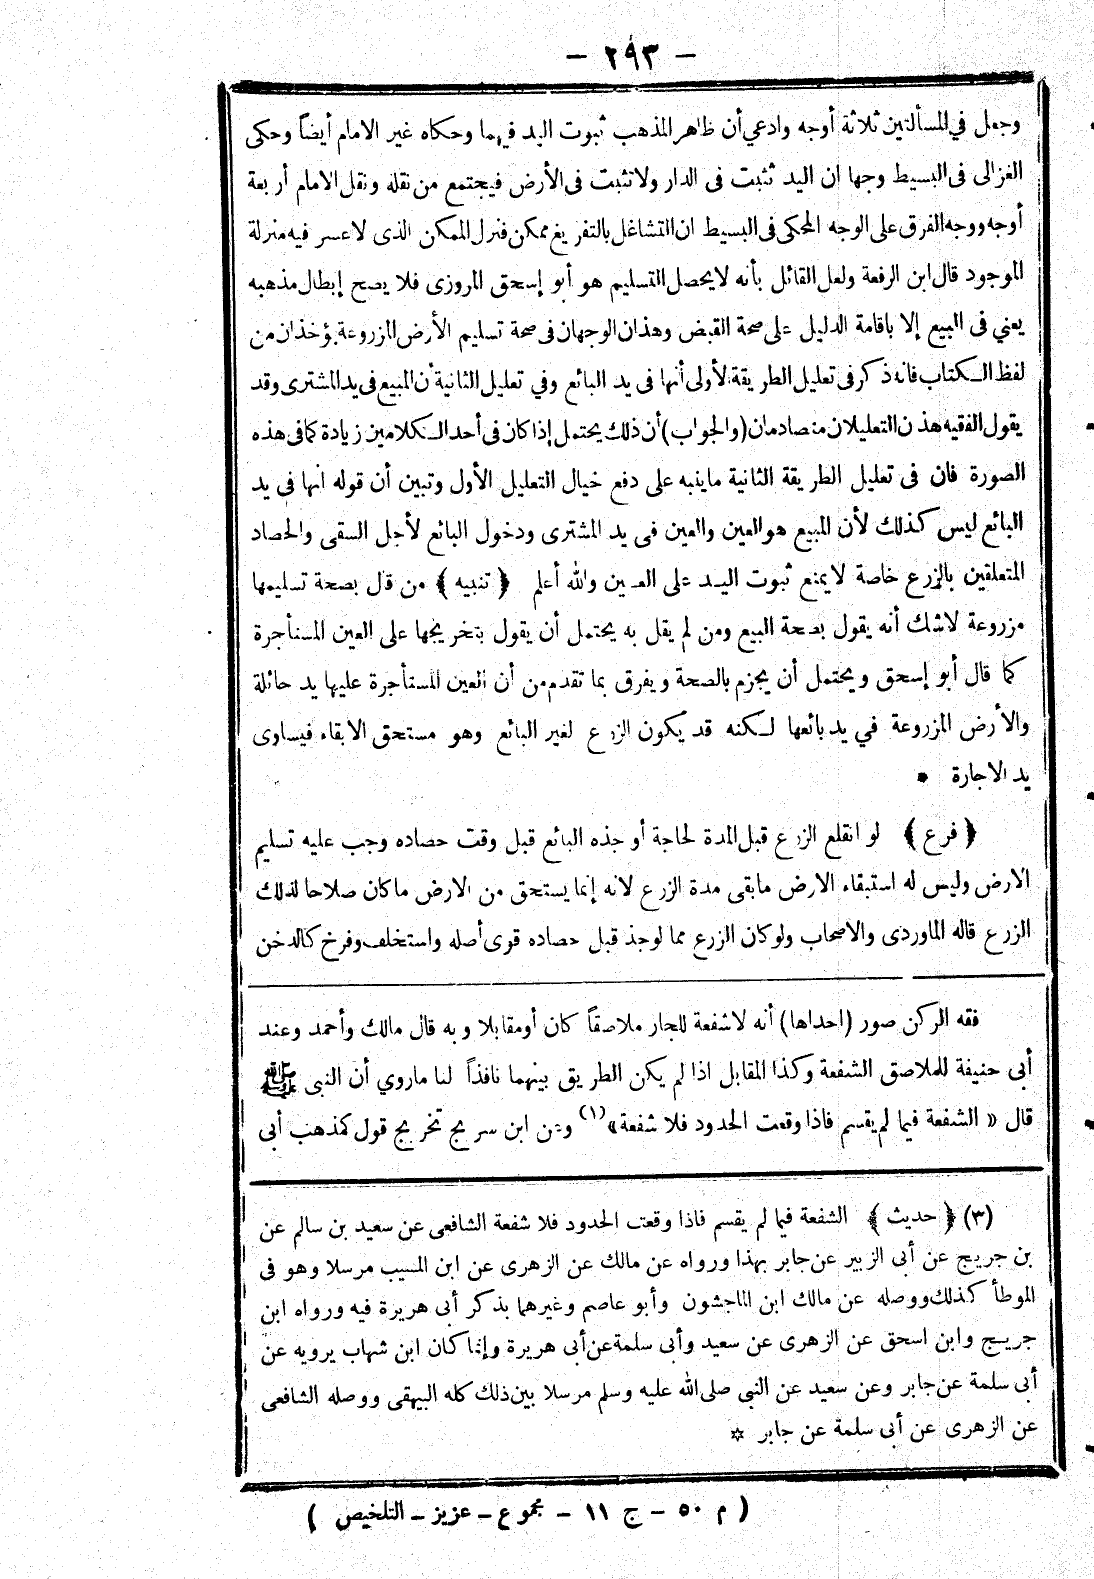 - ٢٩٣ -
وجعل في المسألتين ثلاثة أوجه وادعي أن ظاهر المذهب ثبوت اليد فيهما وحكاه غير الامام أيضاً وحكى
الغزالى فى البسيط وجها ان اليد تثبت فى الدار ولا تثبت فى الأرض فيجتمع من نقله ونقل الامام أربعة
أوجه ووجه الفرق على الوجه المحكى فى البسيط ان التشاغل بالتفريغ ممكن فنزل الممكن الذى لا عسر فيه منزلة
الموجود قال ابن الرفعة ولعل القائل بأنه لا يحصل التسليم هو أبو إسحق المروزى فلا يصح إبطال مذهبه
يعني فى البيع إلا باقامة الدليل على صحة القبض وهذان الوجهان فى صحة تسليم الأرض المزروعة يؤخذان من
لفظ الكتاب فانه ذكر فى تعليل الطريقة الأولى أنها فى يد البائع وفي تعليل الثانية أن المبيع فى يد المشترى وقد
يقول الفقيه هذن التعليلان متصادمان (والجواب) أن ذلك يحتمل إذا كان فى أحد الكلامين زيادة كما فى هذه
الصورة فان فى تعليل الطريقة الثانية ما ينبه على دفع خيال التعليل الأول وتبين أن قوله انها فى يد
البائع ليس كذلك لأن المبيع هو العين والعين فى يد المشترى ودخول البائع لأجل السقى والحصاد
المتعلقين بالزرع خاصة لا يمنع ثبوت اليد على العين والله أعلم ﴿ تنبيه ﴾ من قال بصحة تسليمها
مزروعة لا شك أنه يقول بصحة البيع ومن لم يقل به يحتمل أن يقول بتخريجها على العين المستأجرة
كما قال أبو إسحق ويحتمل أن يجزم بالصحة ويفرق بما تقدم من أن العين المستأجرة عليها يد حائلة
والأرض المزروعة في يد بائعها لكنه قد يكون الزرع لغير البائع وهو مستحق الابقاء فيساوى
يد الاجارة *
﴿ فرع ﴾ لو انقلع الزرع قبل المدة لحاجة أو جذه البائع قبل وقت حصاده وجب عليه تسليم
الارض وليس له استبقاء الارض ما بقى مدة الزرع لانه إنما يستحق من الارض ما كان صلاحا لذلك
الزرع قاله الماوردى والاصحاب ولو كان الزرع مما لو جذ قبل حصاده قوى أصله واستخلف وفرخ كالدخن
فقه الركن صور (احداها) أنه لا شفعة للجار ملاصقاً كان أو مقابلا وبه قال مالك وأحمد وعند
أبى حنيفة للملاصق الشفعة وكذا المقابل اذا لم يكن الطريق بينهما نافذاً لنا ماروي أن النبى ﷺ
قال « الشفعة فيما لم يقسم فاذا وقعت الحدود فلا شفعة » (١) وعن ابن سريج تخريج قول كمذهب أبى
(٣) ﴿ حديث ﴾ الشفعة فيما لم يقسم فاذا وقعت الحدود فلا شفعة الشافعى عن سعيد بن سالم عن
بن جريج عن أبى الزبير عن جابر بهذا ورواه عن مالك عن الزهرى عن ابن المسيب مرسلا وهو فى
الموطأ كذلك ووصله عن مالك ابن الماجشون وأبو عاصم وغيرهما بذكر أبى هريرة فيه ورواه ابن
جريج وابن اسحق عن الزهرى عن سعيد وأبى سلمة عن أبى هريرة وإنما كان ابن شهاب يرويه عن
أبى سلمة عن جابر وعن سعيد عن النبى صلى الله عليه وسلم مرسلا بين ذلك كله البيهقى ووصله الشافعى
عن الزهرى عن أبى سلمة عن جابر *
( م ٥٠ - ج ١١ - مجموع - عزيز - التلخيص )